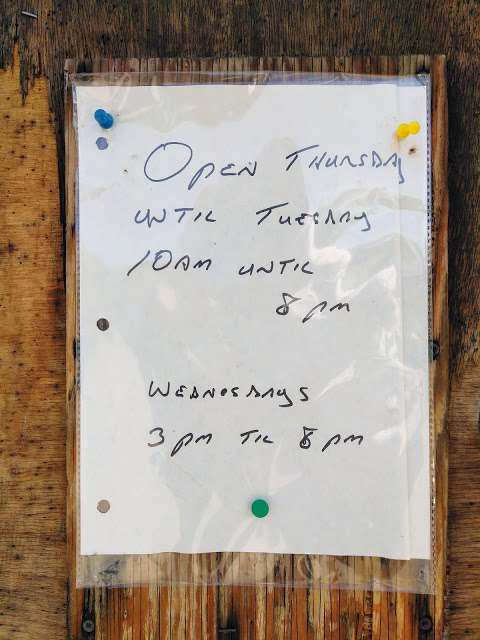 OPEN THURSDAY
UNTIL TUESDAY
10AM UNTIL
8PM
WEDNESDAYS
3PM TIL 8PM